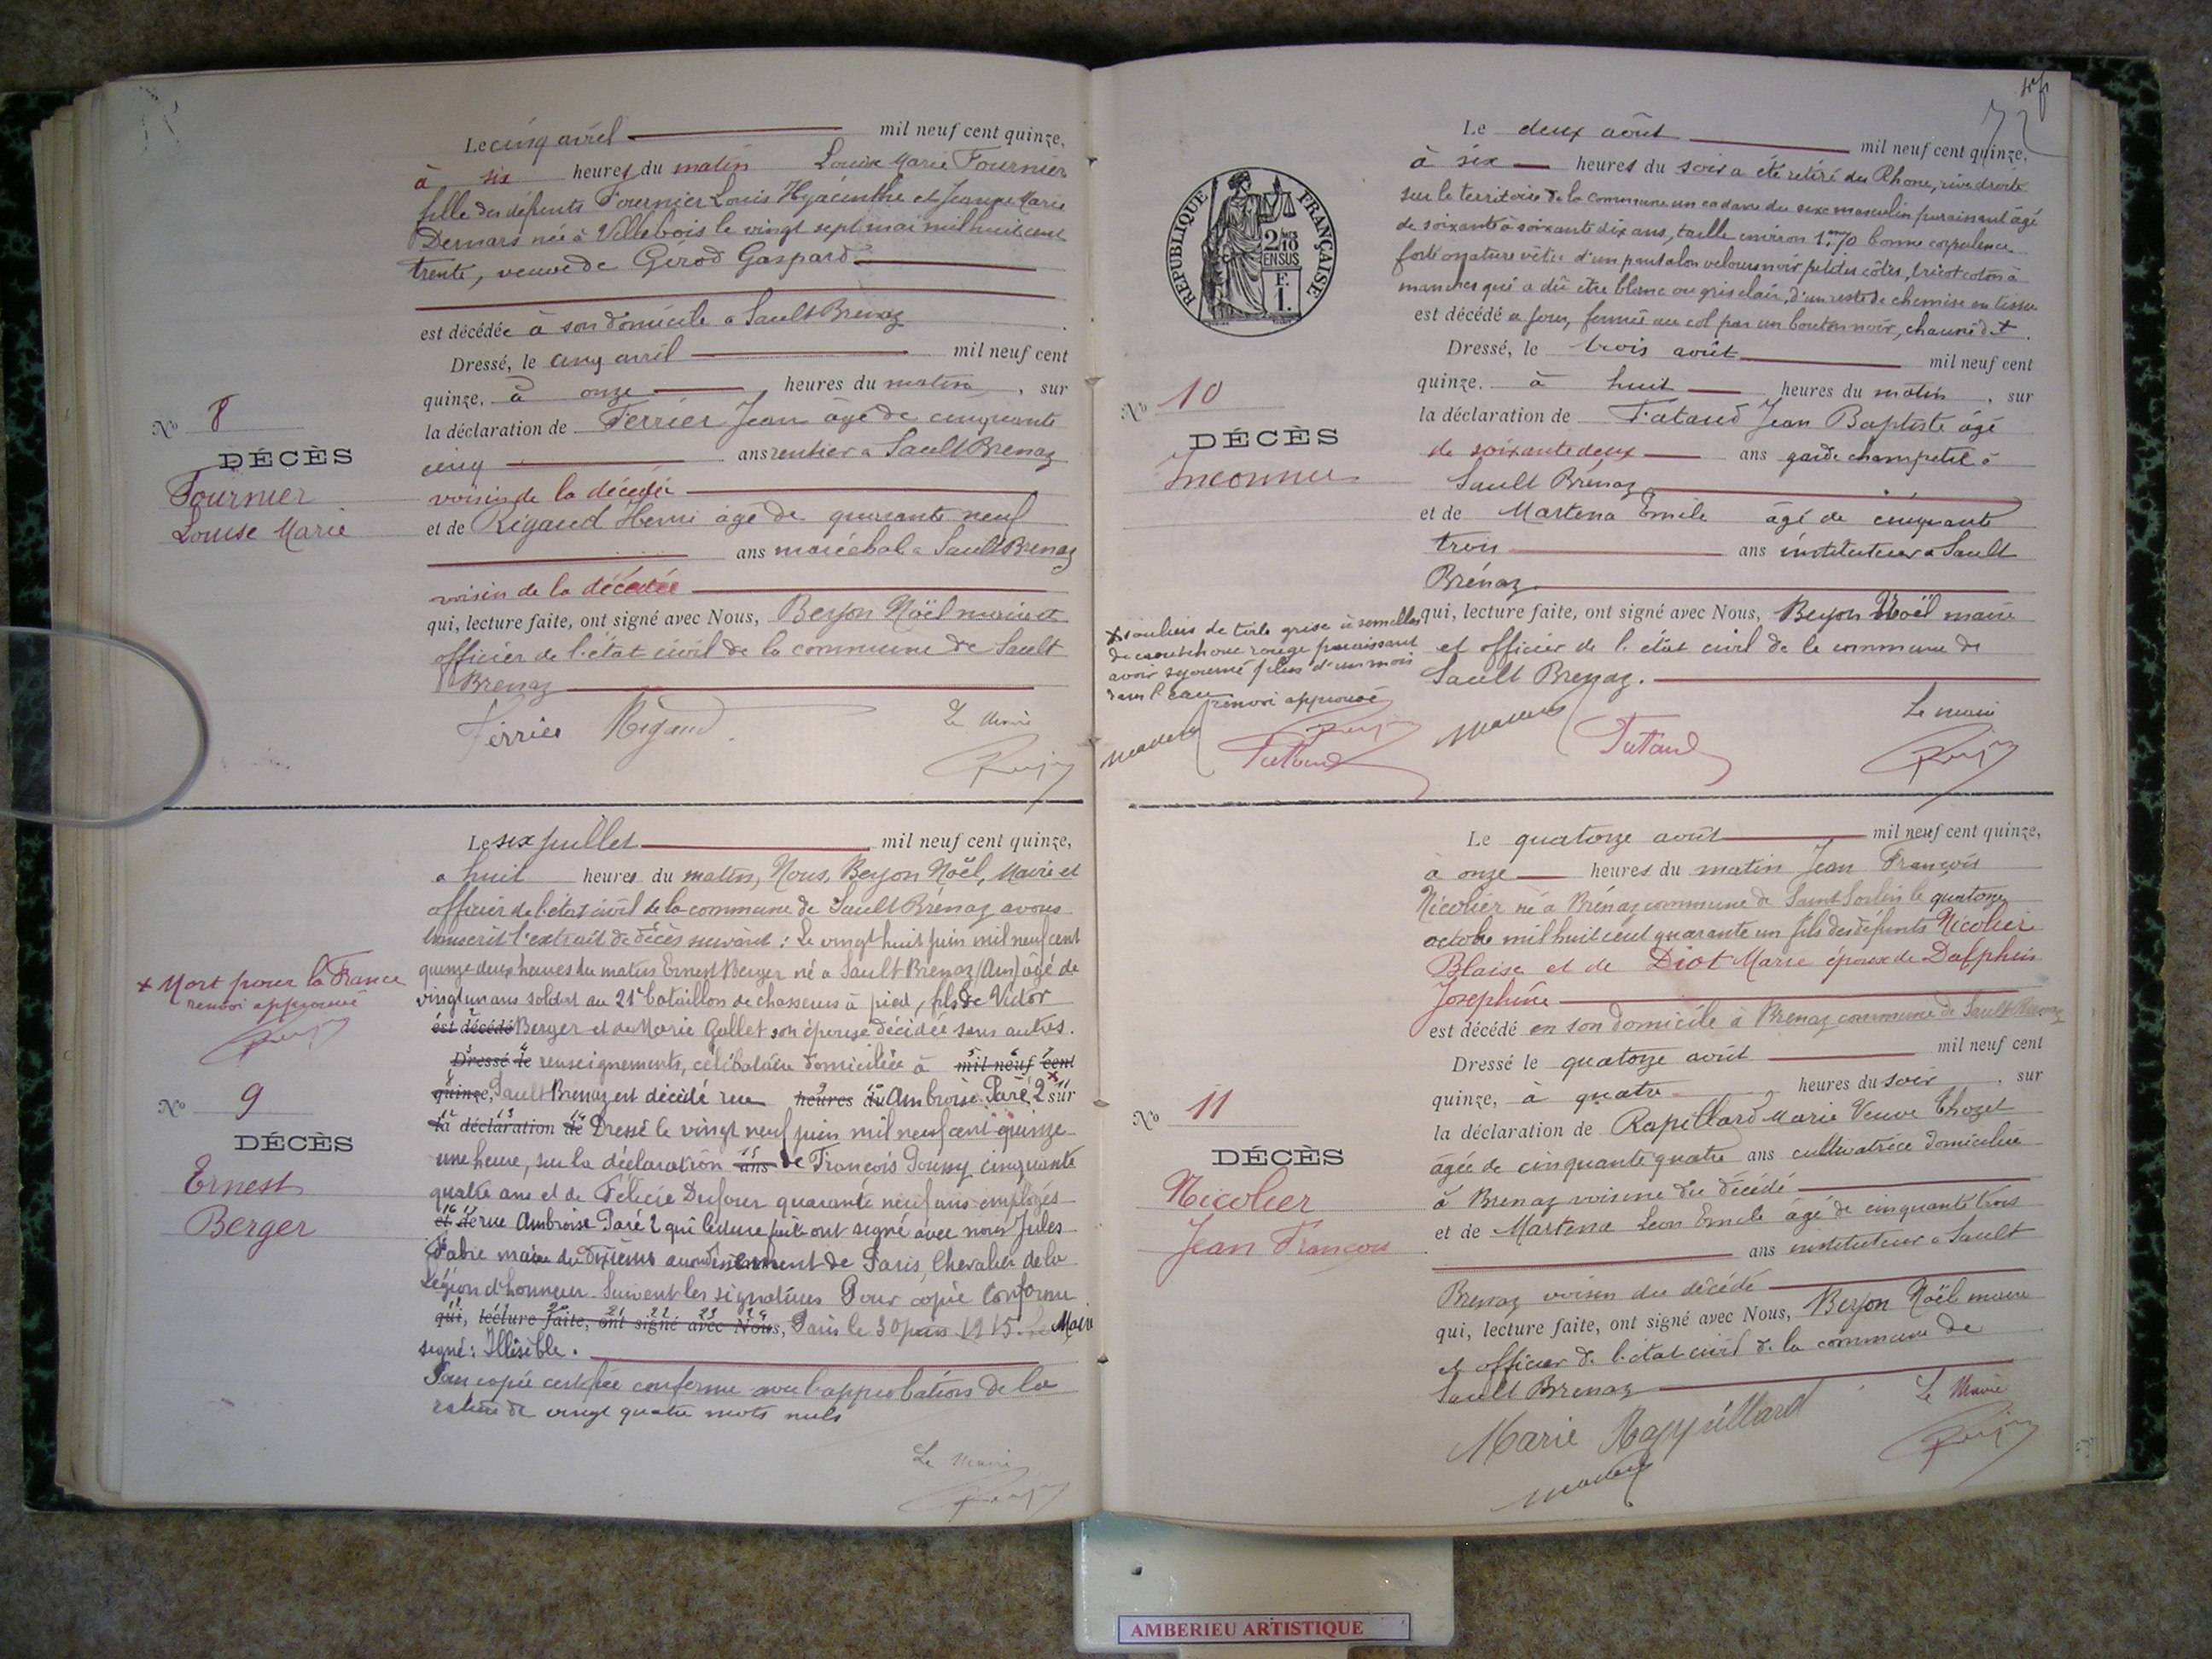 Le cinq avril mil neuf cent quinze,
à six heures du matin Louise Marie Fournier
fille des défunts Fournier Louis Hyacinthe et Jeanne Marie
née à Villebois le vingt sept mai mil huit cent
trente, veuve de Gérod Gaspard
est décédée à son domicile a Sault Brenaz
Dressé, le cinq avril mil neuf cent
quinze, à onze heures du matin, sur
la déclaration de Ferrier Jean âgé de cinquante
cinq ans rentier a Sault Brenaz
voisin de la décédée
et de Rigaud Henri agé de quarante neuf
ans maréchal a Sault Brenaz
voisin de la décédée
qui, lecture faite, ont signé avec Nous, Beyon Noël maire et
officier de l'état civil de la commune de Sault
Brenaz
Ferrier Rigaud Le Maire
No 8
DÉCÈS
Fournier
Louise Marie
Le six juillet mil neuf cent quinze,
a huit heures du matin, Nous, Beyon Noël, Maire et
officier de l'état civil de la commune de Sault Brénaz avons
transcrit l'extrait de décès suivant : Le vingt huit juin mil neuf cent
quinze deux heures du matin Ernest Berger né a Sault Brenaz (Ain) âgé de
vingt un ans soldat au 21e bataillon de chasseurs à pied, fils de Victor
est décédé Berger et de Marie Gallet son épouse décédée sans autres.
Dressé le renseignements, célibataire domicilié à mil neuf cent
quinze, Sault Brenaz est décédé rue heures du Ambroise Paré, 2 sur
la déclaration de Dressé le vingt neuf juin mil neuf cent quinze
une heure, sur la déclaration ans de François cinquante
quatre ans et de Félicie Dufour quarante neuf ans employés
et de rue Ambroise Paré 2 qui lecture faite ont signé avec nous Jules
Fabre maire du Dixième arrondissement de Paris, Chevalier de la
Légion d'honneur. Suivent les signatures Pour copie Conforme
qui, lecture faite, ont signé avec Nous, Paris le 30 juin 1915. Le Maire
signé : Illisible.
Pour copie certifiée conforme avec l'approbation de la
rature de vingt quatre mots nuls
Le Maire
+ Mort pour la France
renvoi approuvé
No 9
DÉCÈS
Ernest
Berger
72
RÉPUBLIQUE FRANÇAISE
2 10MES
EN SUS
F.
1.
Le deux août mil neuf cent quinze,
à six heures du soir a été retiré du Rhone, rive droite
sur le territoire de la commune un cadavre du sexe masculin paraissant âgé
de soixante à soixante dix ans, taille environ 1m70 bonne corpulence
forte ossature vêtu d'un pantalon velours noir petites côtes, tricot coton à
manches qui a dû être blanc ou gris clair, d'un reste de chemise en tissu
est décédé a jour, fermée au col par un bouton noir, chaussé d +
Dressé, le trois août mil neuf cent
quinze. à huit heures du matin, sur
la déclaration de Jean Baptiste âgé
de soixante deux ans garde champetre à
Sault Brénaz
et de Martena Emile âgé de cinquante
trois ans instituteur a Sault
Brénaz
qui, lecture faite, ont signé avec Nous, Beyon Noël maire
et officier de l'état civil de la commune de
Sault Brenaz.
Le maire
+ souliers de toile grise à semelles
de caoutchouc rouge paraissant
avoir séjourné plus d'un mois
dans l'eau renvoi approuvé
No 10
DÉCÈS
Inconnu
Le quatorze août mil neuf cent quinze,
à onze heures du matin Jean François
Nicolier né à Brénaz commune de Saint Sorlin le quatorze
octobre mil huit cent quarante un fils des défunts Nicolier
Blaise et de Diot Marie époux de Dalphin
Josephine
est décédé en son domicile à Brenaz commune de Sault Brenaz
Dressé le quatorze août mil neuf cent
quinze, à quatre heures du soir, sur
la déclaration de Rapillard Marie Veuve Thozet
âgée de cinquante quatre ans cultivatrice domiciliée
à Brenaz voisine du décédé
et de Martena Leon Emile âgé de cinquante trois
ans instituteur a Sault
Brenaz voisin du décédé
qui, lecture faite, ont signé avec Nous, Beyon Noël maire
et officier de l'état civil de la commune de
Sault Brenaz
Marie Rapillard Le Maire
No 11
DÉCÈS
Nicolier
Jean François
AMBERIEU ARTISTIQUE